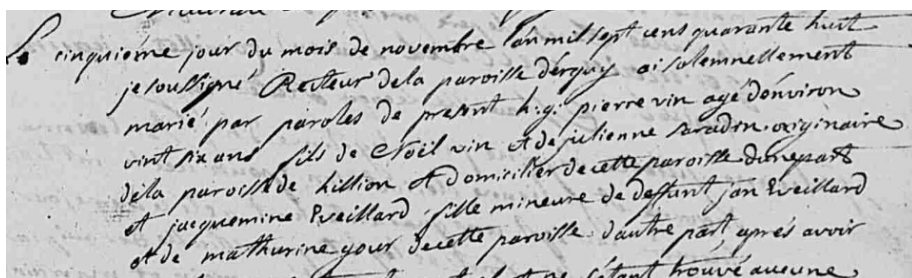 Le cinquieme jour du mois de novembre l'an mil sept cens quarante huit
je soussigné Recteur de la paroisse derquy ai solemnellement
marié par paroles de present h.g. pierre vin agé d'environ
vint six ans fils de Noël vin et de julienne saradin originaire
de la paroisse de hillion et domicilier de cette paroisse d'une part
et jacquemine Eveillard fille mineure de deffunt jan Eveillard
et de mathurine gour de cette paroisse d'autre part, aprés avoir
et ne s'étant trouvé aucune